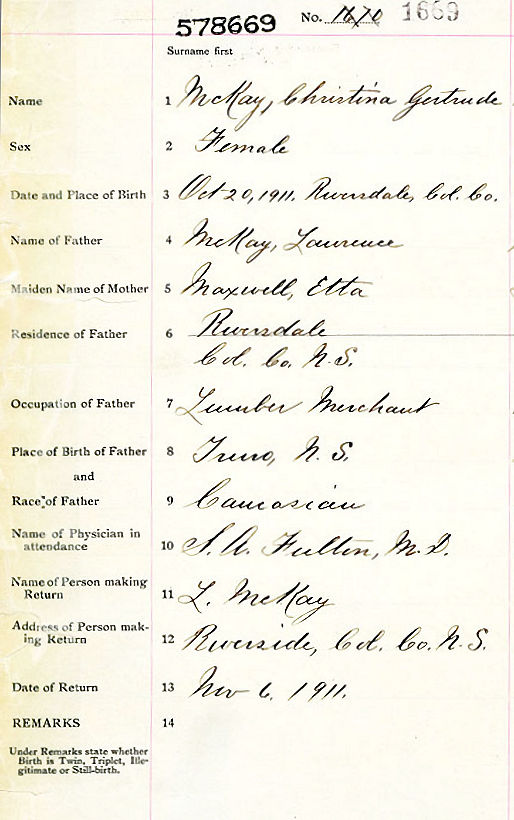 578669 No. 1670 1669
Surname first
Name 1 McKay, Christina Gertrude
Sex 2 Female
Date and Place of Birth 3 Oct 20, 1911. Riversdale, Col. Co.
Name of Father 4 McKay, Lawrence
Maiden Name of Mother 5 Maxwell, Etta
Residence of Father 6 Riversdale
Col. Co. N.S.
Occupation of Father 7 Lumber Merchant
Place of Birth of Father 8 Truro, N.S.
and
Race of Father 9 Caucasian
Name of Physician in
attendance 10 S. A. Fulton, M.D.
Name of Person making
Return 11 L. McKay
Address of Person mak-
ing Return 12 Riverside, Col. Co. N.S.
Date of Return 13 Nov 6. 1911.
REMARKS 14
Under Remarks state whether
Birth is Twin, Triplet, Ille-
gitimate or Still-birth.